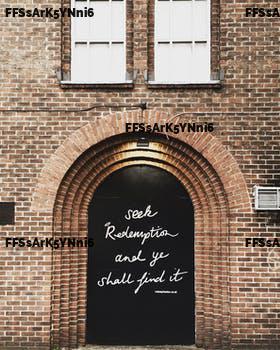 FFSsArK5YNni6 FFSsArK5YNni6
FFSsArK5YNni6
seek
Redemption
and ye
shall find it
FFSsArK5YNni6 FFSsArK5YNni6